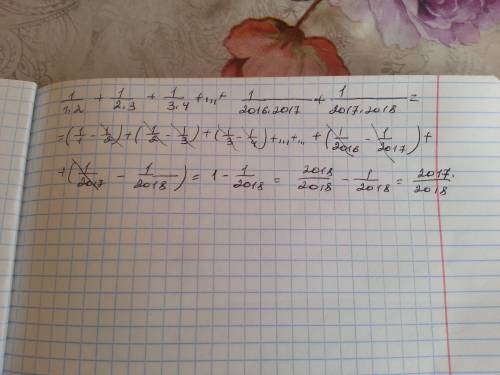 1/1·2 + 1/2·3 + 1/3·4 +...+ 1/2016·2017 + 1/2017·2018 =
=(1/1 - 1/2)+(1/2 - 1/3)+(1/3 - 1/4)+...+...+(1/2016 - 1/2017)+
+(1/2017 - 1/2018) = 1 - 1/2018 = 2018/2018 - 1/2018 = 2017/2018.